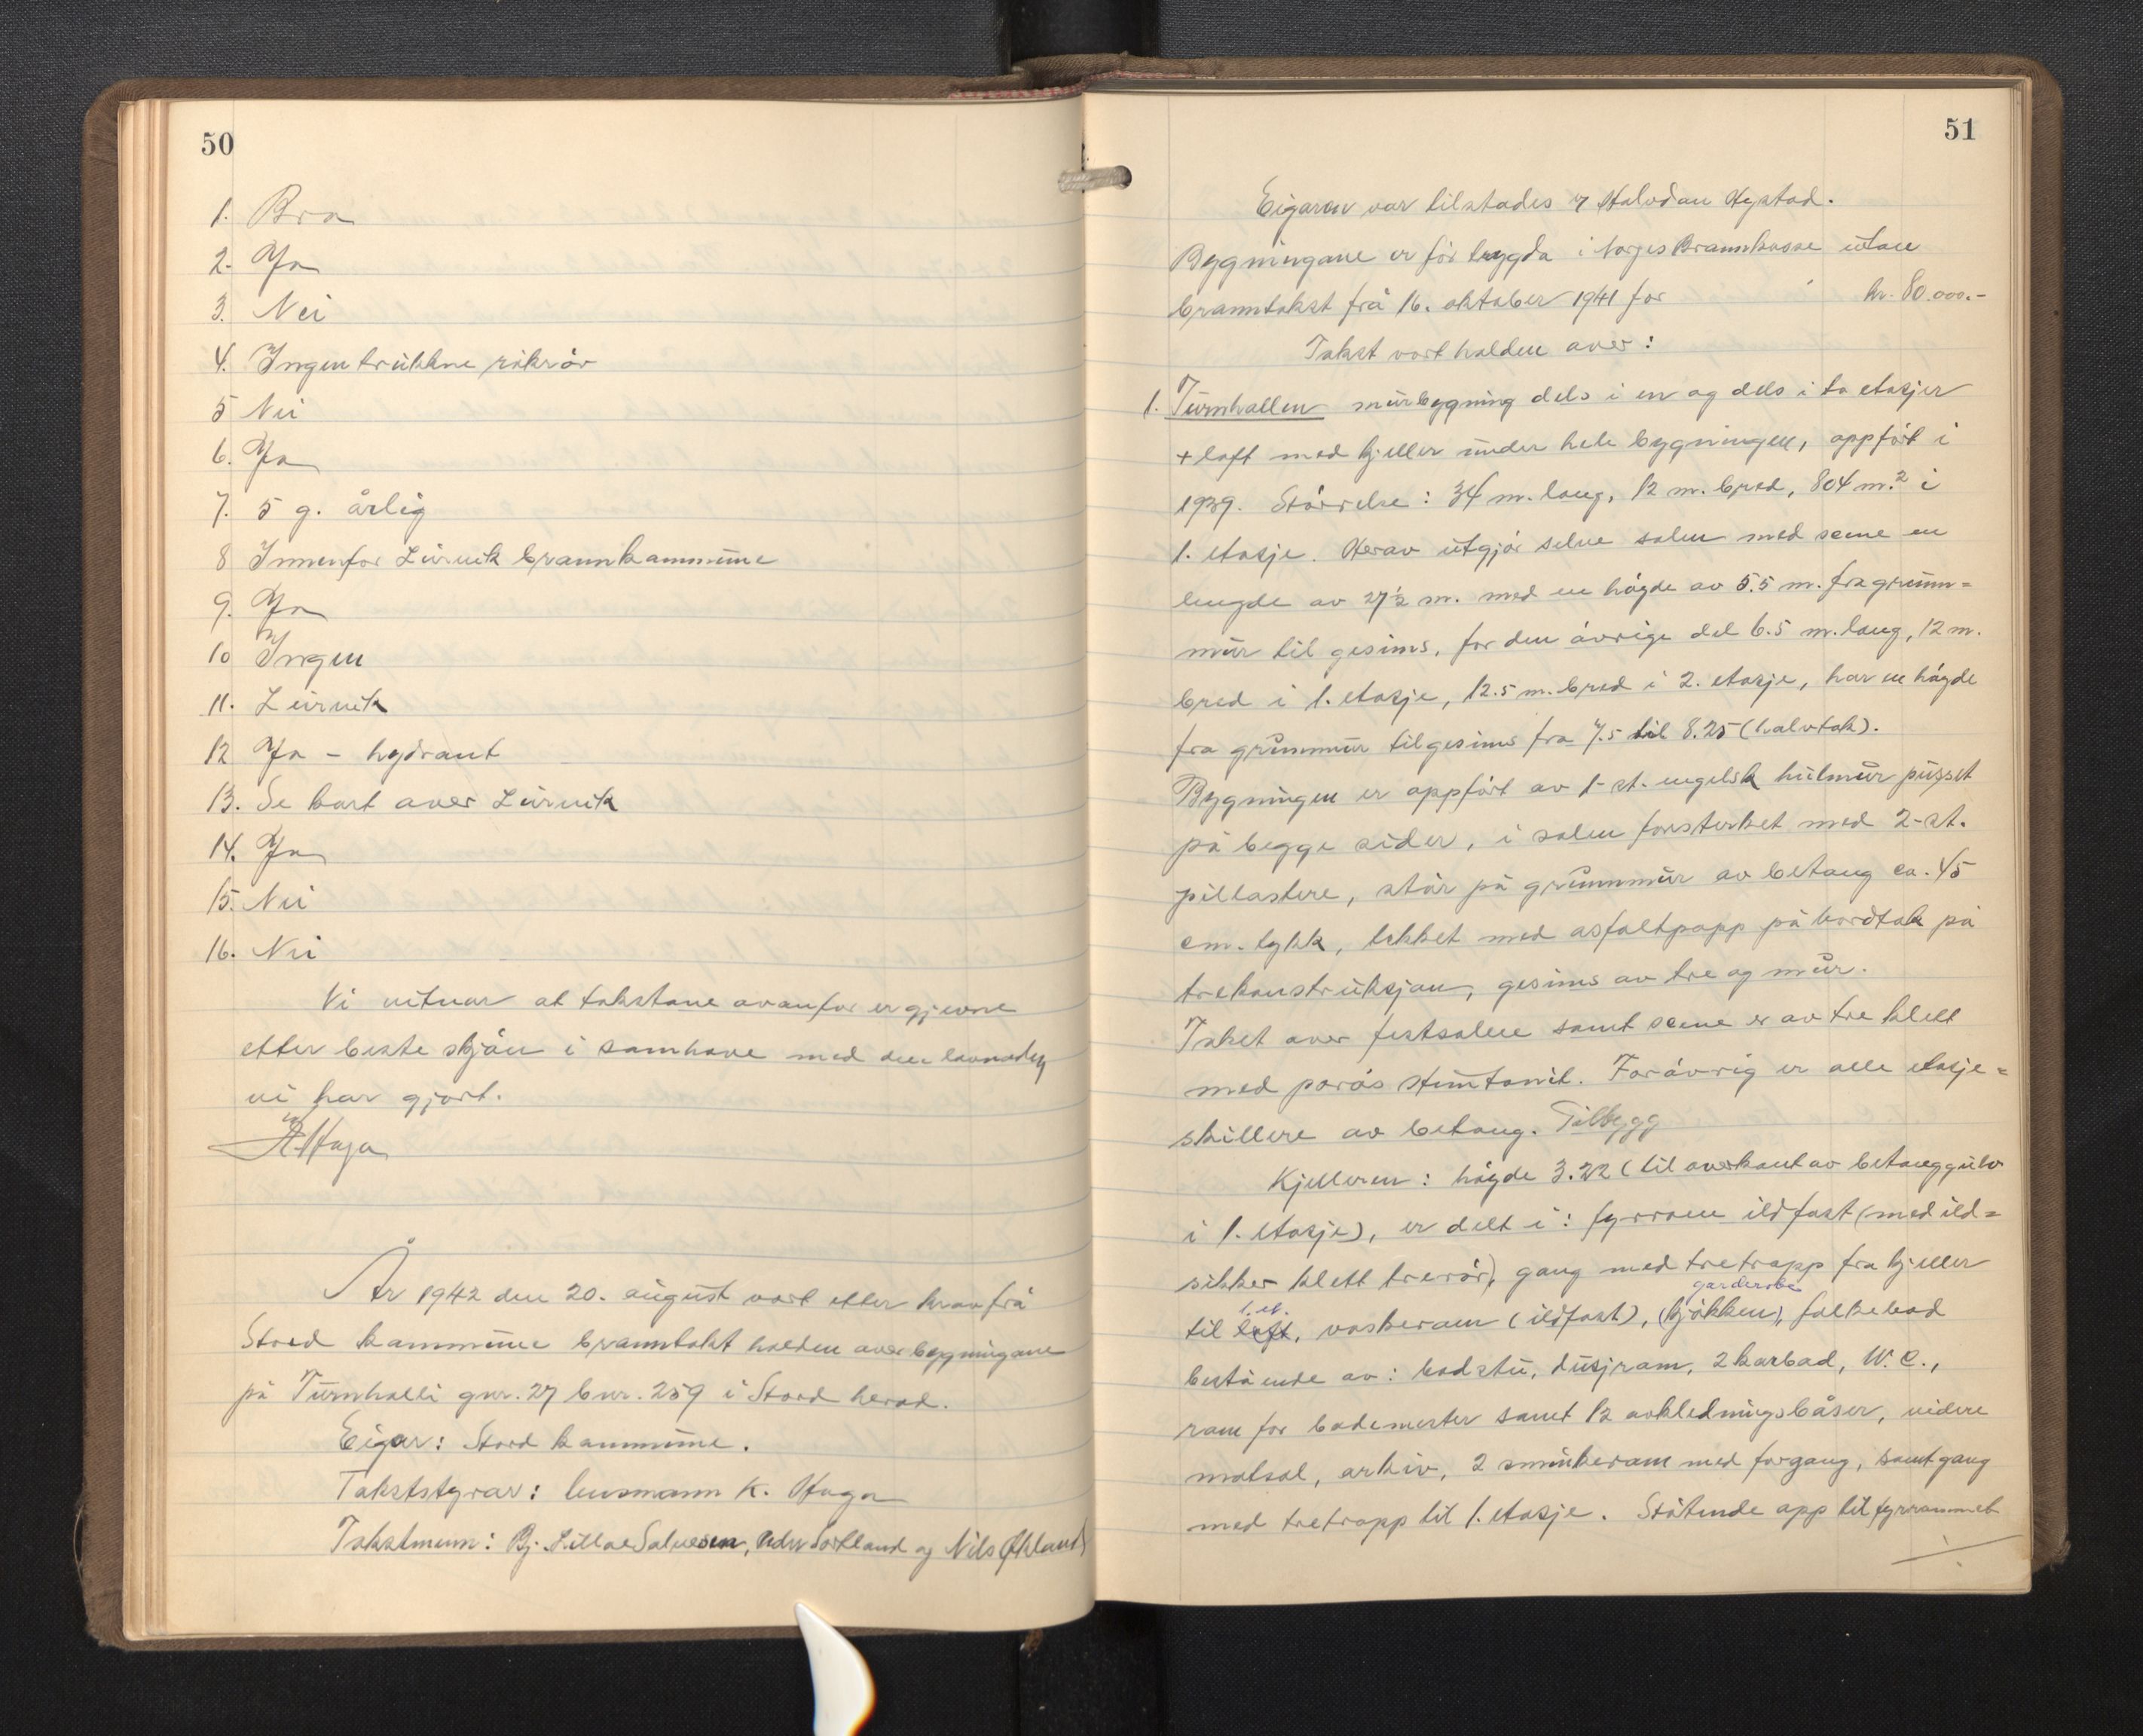 50
1. Bra
2. Ja
3. Nei
4. Ingen trukkne rökrör
5 Nei
6. Ja
7. 5 g. årlig
8 Innenfor Leirvik brannkommune
9. Ja
10 Ingen
11. Leirvik
12 Ja - hydrant
13. Se kart over Leirvik
14. Ja
15. Nei
16. Nei
Vi vitnar at takstane ovanfor er gjevne
etter beste skjön i samhøve med den lovnaden
vi har gjort.
K. Haga
År 1942 den 20. august vart etter krav frå
Stord kommune branntakst halden over bygningane
på Turnhalli gnr. 27 bnr. 259 i Stord herad.
Eigar: Stord kommune.
Takststyrar: lensmann K. Haga
Takstmenn: Bj. Litlae Salvesen, Peder Sortland og Nils Økland
51
Eigaren var tilstades v/ Halvdan Hystad.
Bygningane er för trygda i Norges Brannkasse utan
branntakst frå 16. oktober 1941 for kr. 80.000.-
Takst vart halden over:
1. Turnhallen murbygning dels i en og dels i to etasjer
+ loft med kjeller under hele bygningen, oppfört i
1939. Störrelse: 34 m. lang, 12 m. bred, 804 m.² i
1. etasje. Herav utgjör selve salen med scene en
lengde av 27½ m. med en högde av 5.5 m. fra grunn=
mur til gesims, for den övrige del 6.5 m. lang, 12 m.
bred i 1. etasje, 12.5 m. bred i 2. etasje, har en högde
fra grunnmur til gesims fra 7.5 til 8.25 (halvtak).
Bygningen er oppfört av 1-st. engelsk hulmur pusset
på begge sider, i salen forsterket med 2-st.
pillastere, står på grunnmur av betong ca. 45
cm. tykk, tekket med asfaltpapp på bordtak på
trekonstruksjon, gesims av tre og mur.
Taket over festsalen samt scene er av tre kledt
med porös Huntonit. Forövrig er alle etasje=
skillere av betong. Tilbygg
Kjelleren: högde 3.22 (til overkant av betonggulv
i 1. etasje), er delt i: fyrrom ildfast (med ild=
sikker kledt tredör), gang med tretrapp fra kjeller
garderobe
1. et.
til loft, vaskerom (ildfast), (kjökken), folkebad
bestående av: badstu, dusjrom, 2 karbad, W.C.,
rom for bademester samt 12 avkledningsbåser, videre
matsal, arkiv, 2 sminkerom med forgang, samt gang
med tretrapp til 1. etasje. Stötende opp til fyrrommet